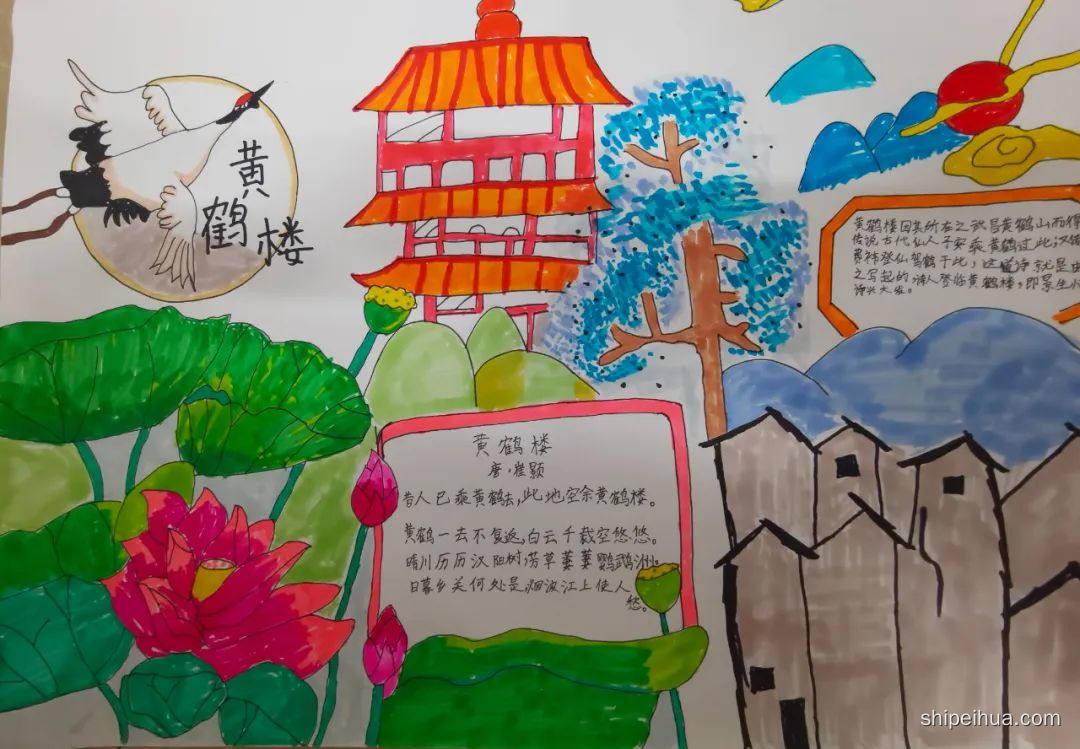 黄
鹤
楼
黄鹤楼因其所在之武昌黄鹤山而得
传说古代仙人子安乘黄鹤过此
费祎登仙驾鹤于此，这首诗就是
之写起的，诗人登临黄鹤楼，即景生
诗兴大发。
黄鹤楼
唐·崔颢
昔人已乘黄鹤去，此地空余黄鹤楼。
黄鹤一去不复返，白云千载空悠悠。
晴川历历汉阳树，芳草萋萋鹦鹉洲。
日暮乡关何处是，烟波江上使人
愁。
shipeihua.com